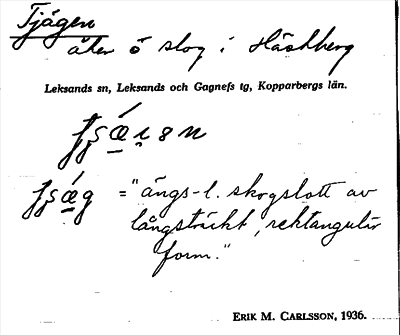 Tjägen
åker o slog i Häshberg
Leksands sn, Leksands och Gagnefs tg, Kopparbergs län.
= "ängs-l. skogslott av
långsträckt, rektangulär
form."
ERIK M. CARLSSON, 1936.